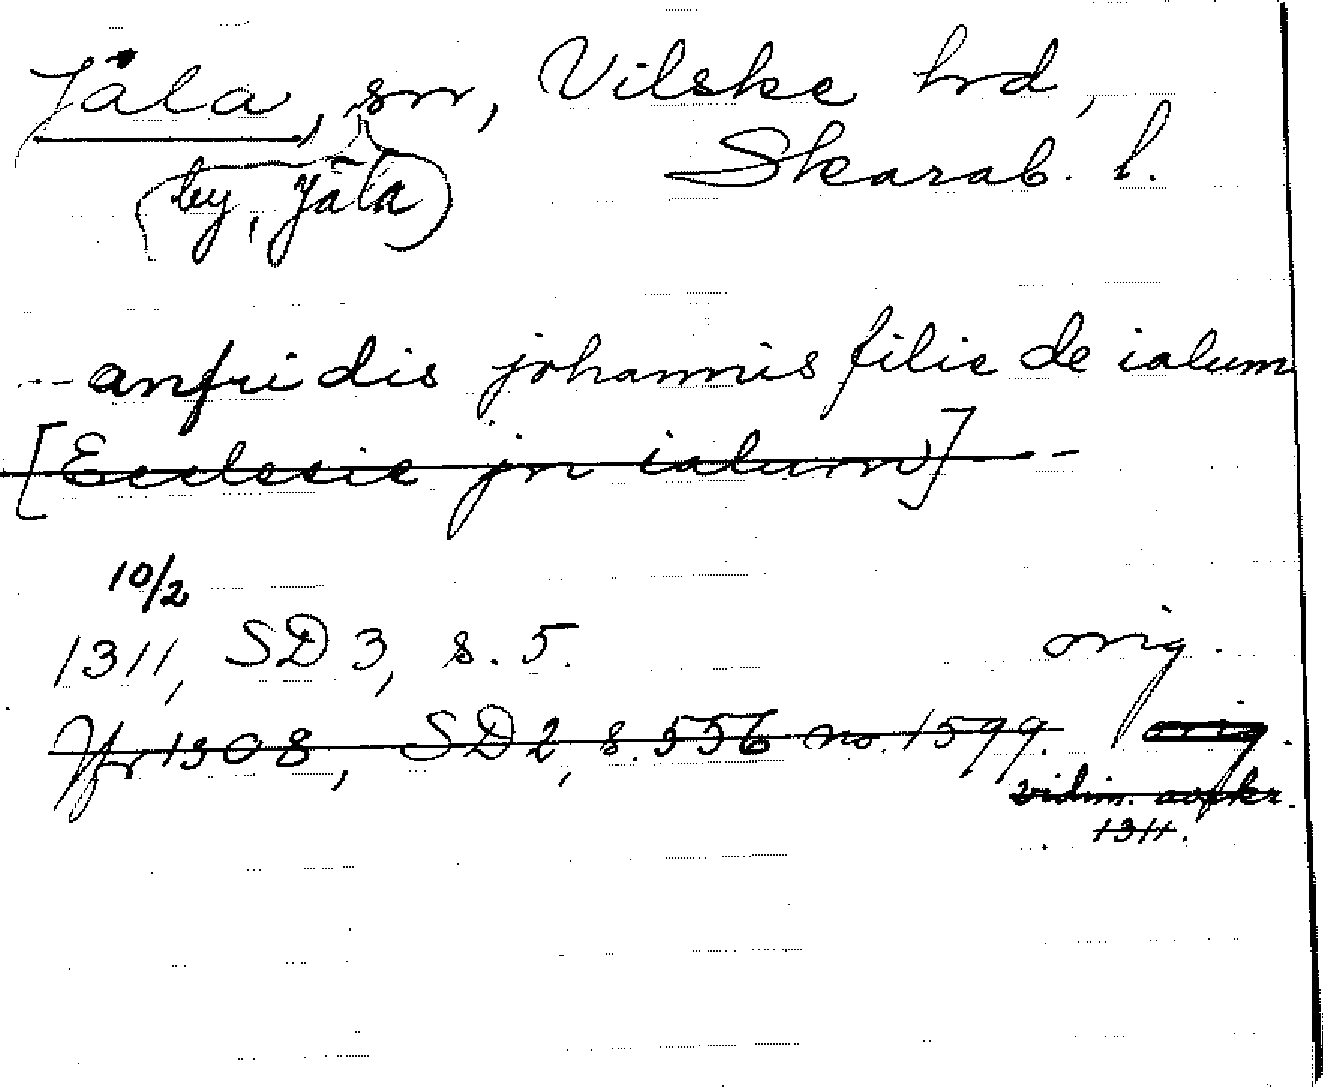 Jäla, sn, Vilske hrd,
Skarab. l.
(by, Jäla)
--- anfridis johannis filie de ialum
[Ecclesie jn ialum] -
10/2
1311, SD 3, s. 5. orig.
Jfr 1308, SD 2, s. 556 no. 1599. orig.
vidim. avskr.
1311.